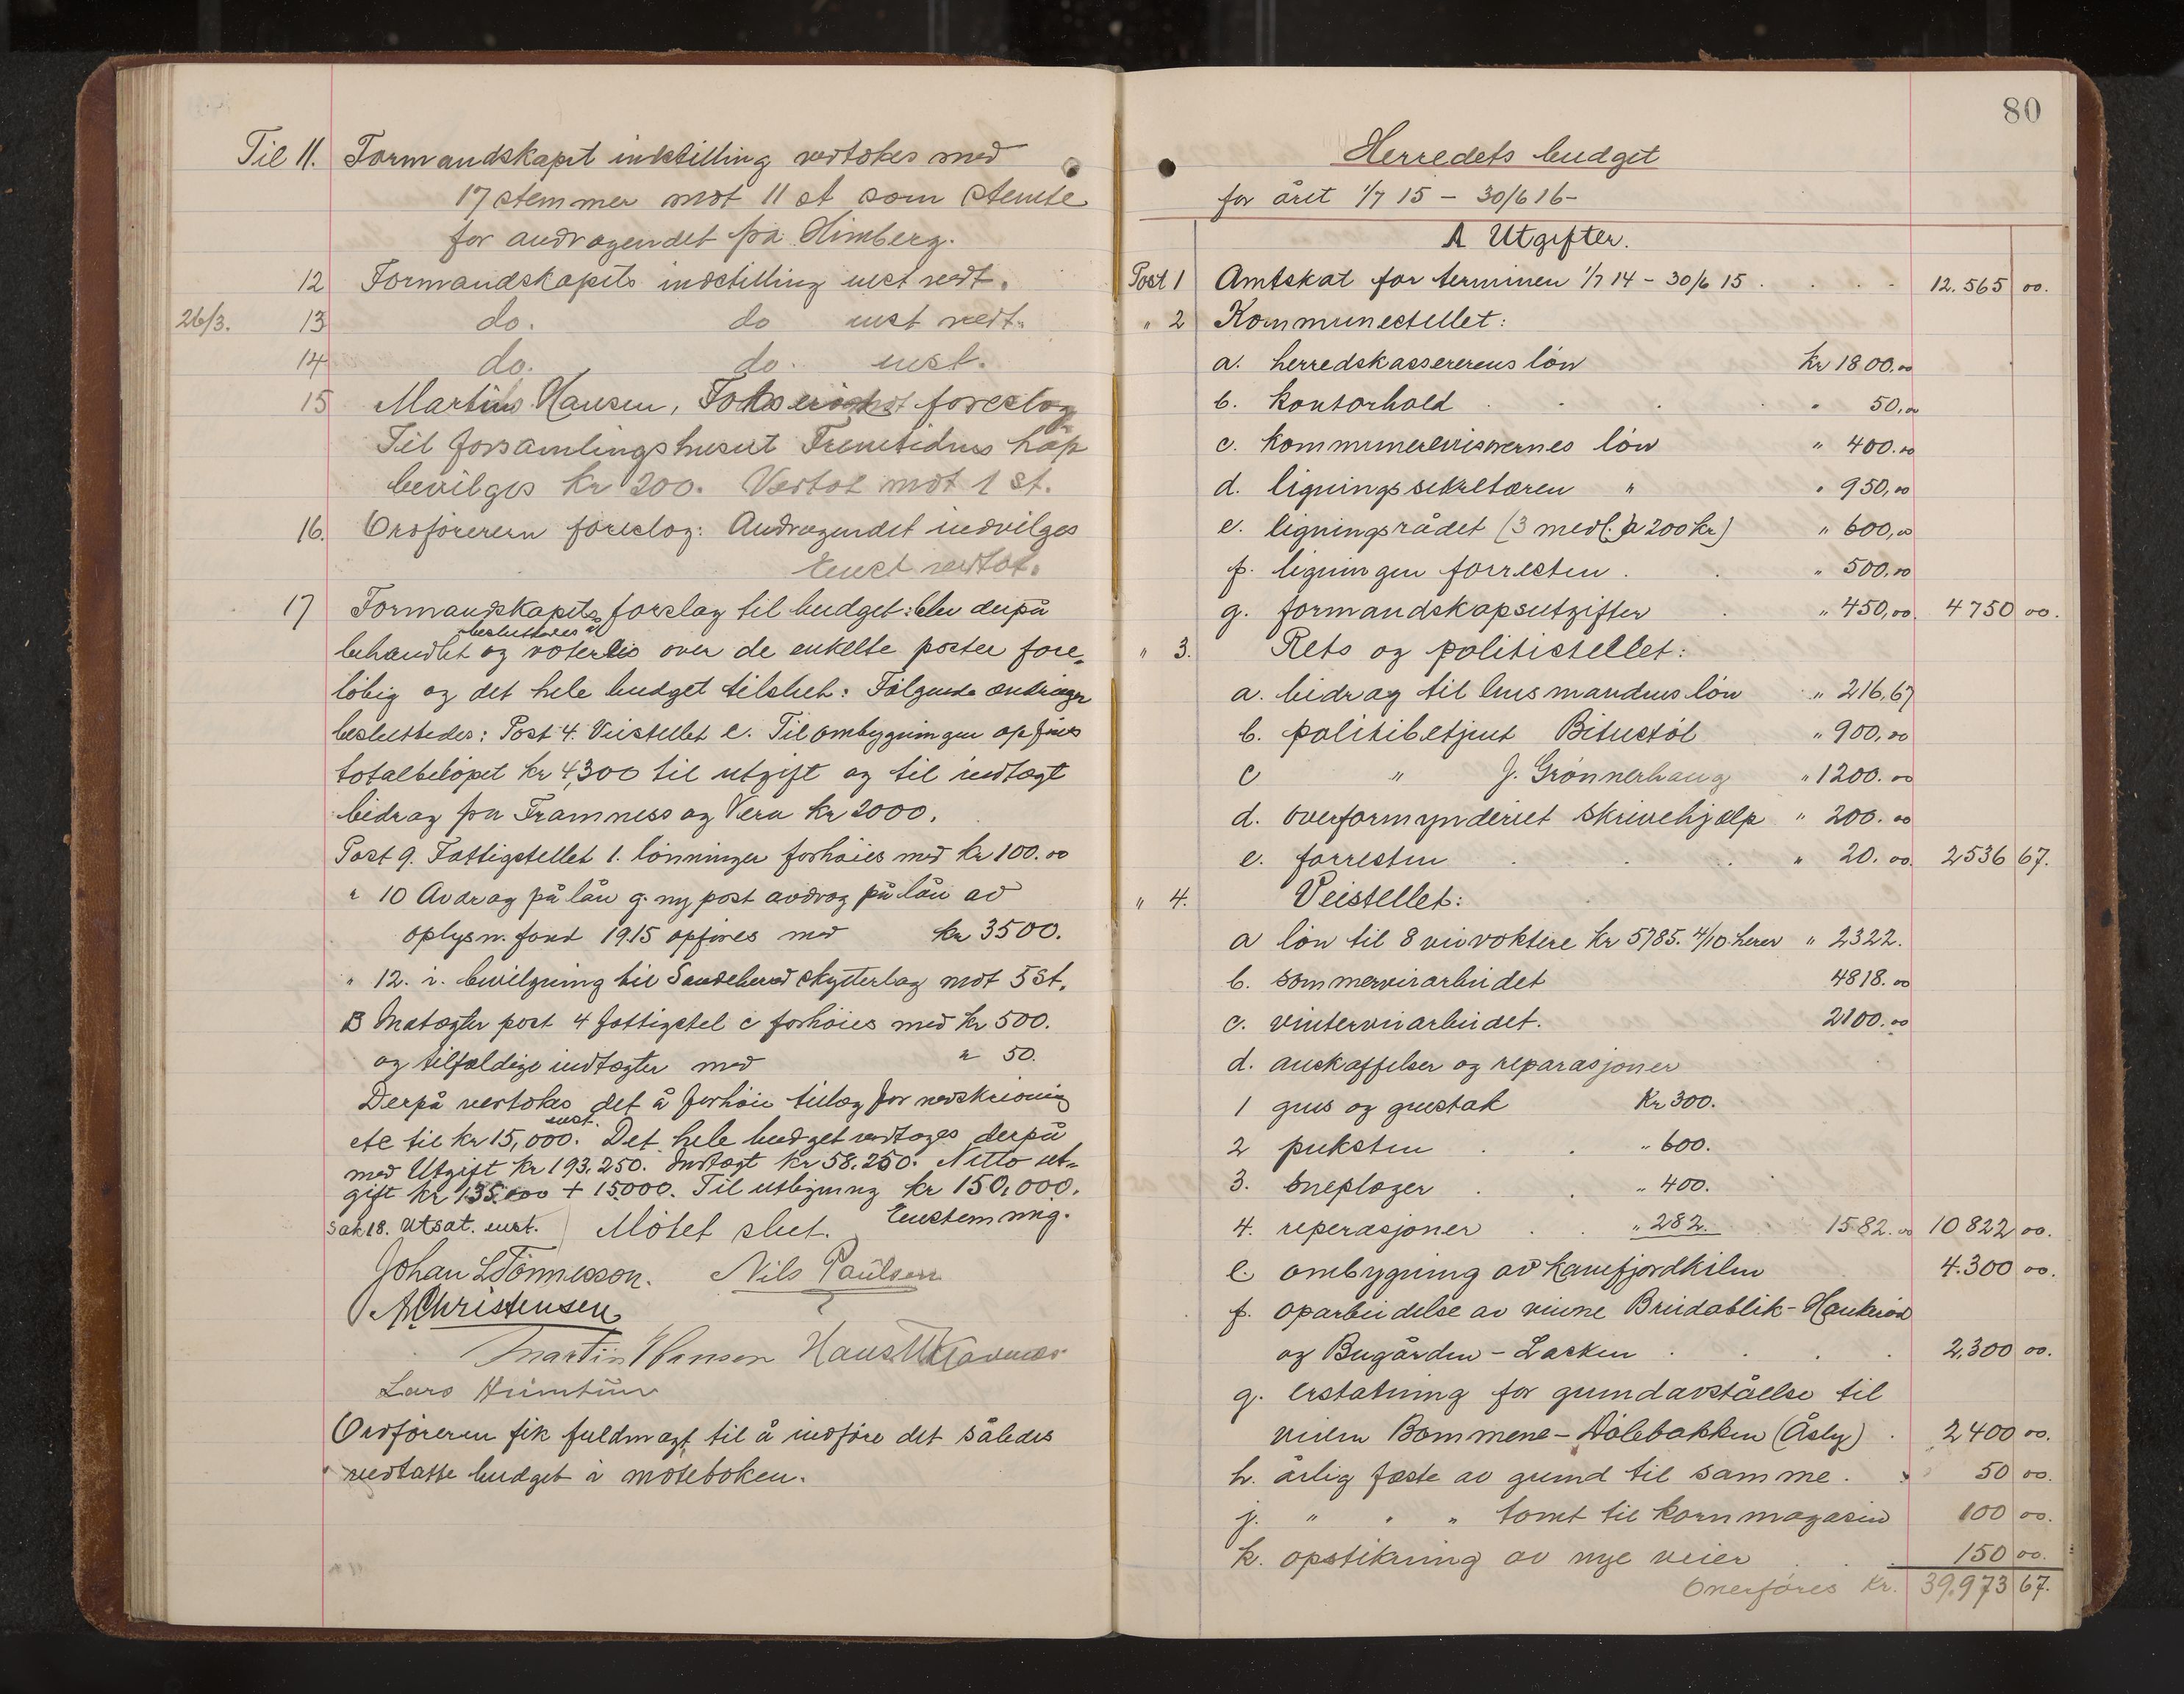 Til 11. Formandskapet indstilling vedtokes med
17 stemmer mot 11 st som stemte
for andragendet fra Himberg.
12 Formandskapets indstilling enst vedt.
26/3. 13 do. do enst vedt.
14 do. do. enst.
15 Martin Hansen, foreslog
Til forsamlingshuset Fremtidens håp
bevilges kr 200. Vedtot mot 1 st.
16. Ordføreren foreslog: Andragendet indvilges
Enst vedtot.
17 Formandskapets forslag til budget: blev derpå
besluttedes å
behandlet og voteres over de enkelte poster fore-
løbig og det hele budget tilslut: Følgende ændringer
besluttedes: Post 4. Veistellet e. Til ombygningen opføres
totalbeløpet kr 4,300 til utgift og til indtægt
bidrag fra Framness og Vera kr 2000.
Post 9. Fattigstellet 1. lønninger forhøies med kr 100.00
" 10 Avdrag på lån g. ny post avdrag på lån av
oplysn. fond 1915 opføres med kr 3500.
" 12. i. bevilgning til Sandeherred skytterlag mot 5 St.
B Indtægter post 4 fattigstel c forhøies med kr 500.
og tilfældige indtægter med " 50.
Derpå vedtokes det å forhøie tillæg for nedskrivning
enst.
etc til kr 15,000. Det hele budget vedtoges derpå
med Utgift kr 193,250. Indtægt kr 58,250. Netto ut-
gift kr 135.000 + 15000. Til utligning kr 150,000.
Sak 18. Utsat. enst. Møtet slut. Enstemmig.
Johan L Tønnesson. Nils Paulsen
A Christensen
Martin Hansen Hans
Lars
Ordføreren fik fuldmagt til å indføre det således
vedtatte budget i møteboken.
80
Herredets budget
for året 1/7 15 – 30/6 16 –
A Utgifter.
Post 1 Amtskat for terminen 1/7 14 – 30/6 15 . . . . 12.565 00.
" 2 Kommunestellet:
a. herredskassererens løn kr 1800.00
b. kontorhold . . . " 50,00
c. kommunerevisorernes løn " 400.00
d. ligningssekretæren " " 950,00
e. ligningsrådet (3 medl. a 200 kr) " 600,00
f. ligningen forresten . . " 500,00
g. formandskapsutgifter . " 450,00. 4750 00.
" 3. Rets og politistellet:
a. bidrag til lensmandens løn " 216,67
b. politibetjent Bitustøl " 900,00
c " J. Grønnerhaug " 1200.00
d. overformynderiet skrivehjælp " 200.00
e. forresten . . . " 20.00. 2536 67.
" 4. Veistellet:
a løn til 8 veivoktere kr 5785. 4/10 herav " 2322.
b. sommerveiarbeidet 4818.00
c. vinterveiarbeidet. 2100.00
d. anskaffelser og reparasjoner
1 grus og grustak Kr 300.
2 puksten . . " 600.
3. sneploger . . " 400.
4. reperasjoner . . " 282. 1582.00 10822 00.
e. ombygning av Kamfjordkilen 4.300 00.
f. oparbeidelse av veiene Breidablik – Haukerød
og Bugården – Lasken . . . . 2,300 00.
g. erstatning for grundavståelse til
veien Bommene – Dølebakken (Åsly) . 2400 00.
h. årlig fæste av grund til samme . " 50 00.
j. " " " tomt til kornmagasin 100 00.
k. opstikning av nye veier . . . 150 00.
Overføres Kr. 39.973 67.